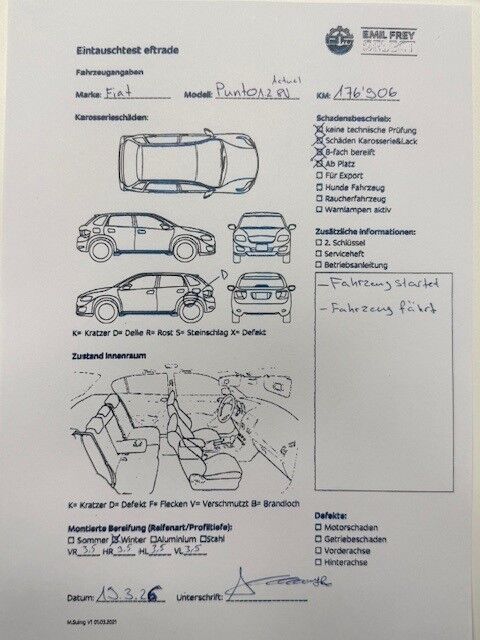 Eintauschtest eftrade
EMIL FREY
SELECT
Fahrzeugangaben
Marke: Fiat Modell: Punto 1.2 8V KM: 176'906
Karosserieschäden:
Schadensbeschrieb:
☒ keine technische Prüfung
☒ Schäden Karosserie&Lack
☒ 8-fach bereift
☒ Ab Platz
☐ Für Export
☐ Hunde Fahrzeug
☐ Raucherfahrzeug
☐ Warnlampen aktiv
Zusätzliche Informationen:
☐ 2. Schlüssel
☐ Serviceheft
☐ Betriebsanleitung
- Fahrzeug started
- Fahrzeug fährt
D
K= Kratzer D= Delle R= Rost S= Steinschlag X= Defekt
Zustand Innenraum
K= Kratzer D= Defekt F= Flecken V= Verschmutzt B= Brandloch
Montierte Bereifung (Reifenart/Profiltiefe):
☐ Sommer ☒ Winter ☐ Aluminium ☐ Stahl
VR 3.5 HR 3.5 HL 3.5 VL 3.5
Defekte:
☐ Motorschaden
☐ Getriebeschaden
☐ Vorderachse
☐ Hinterachse
Datum: 19.3.26 Unterschrift:
M.Suing V1 01.03.2021